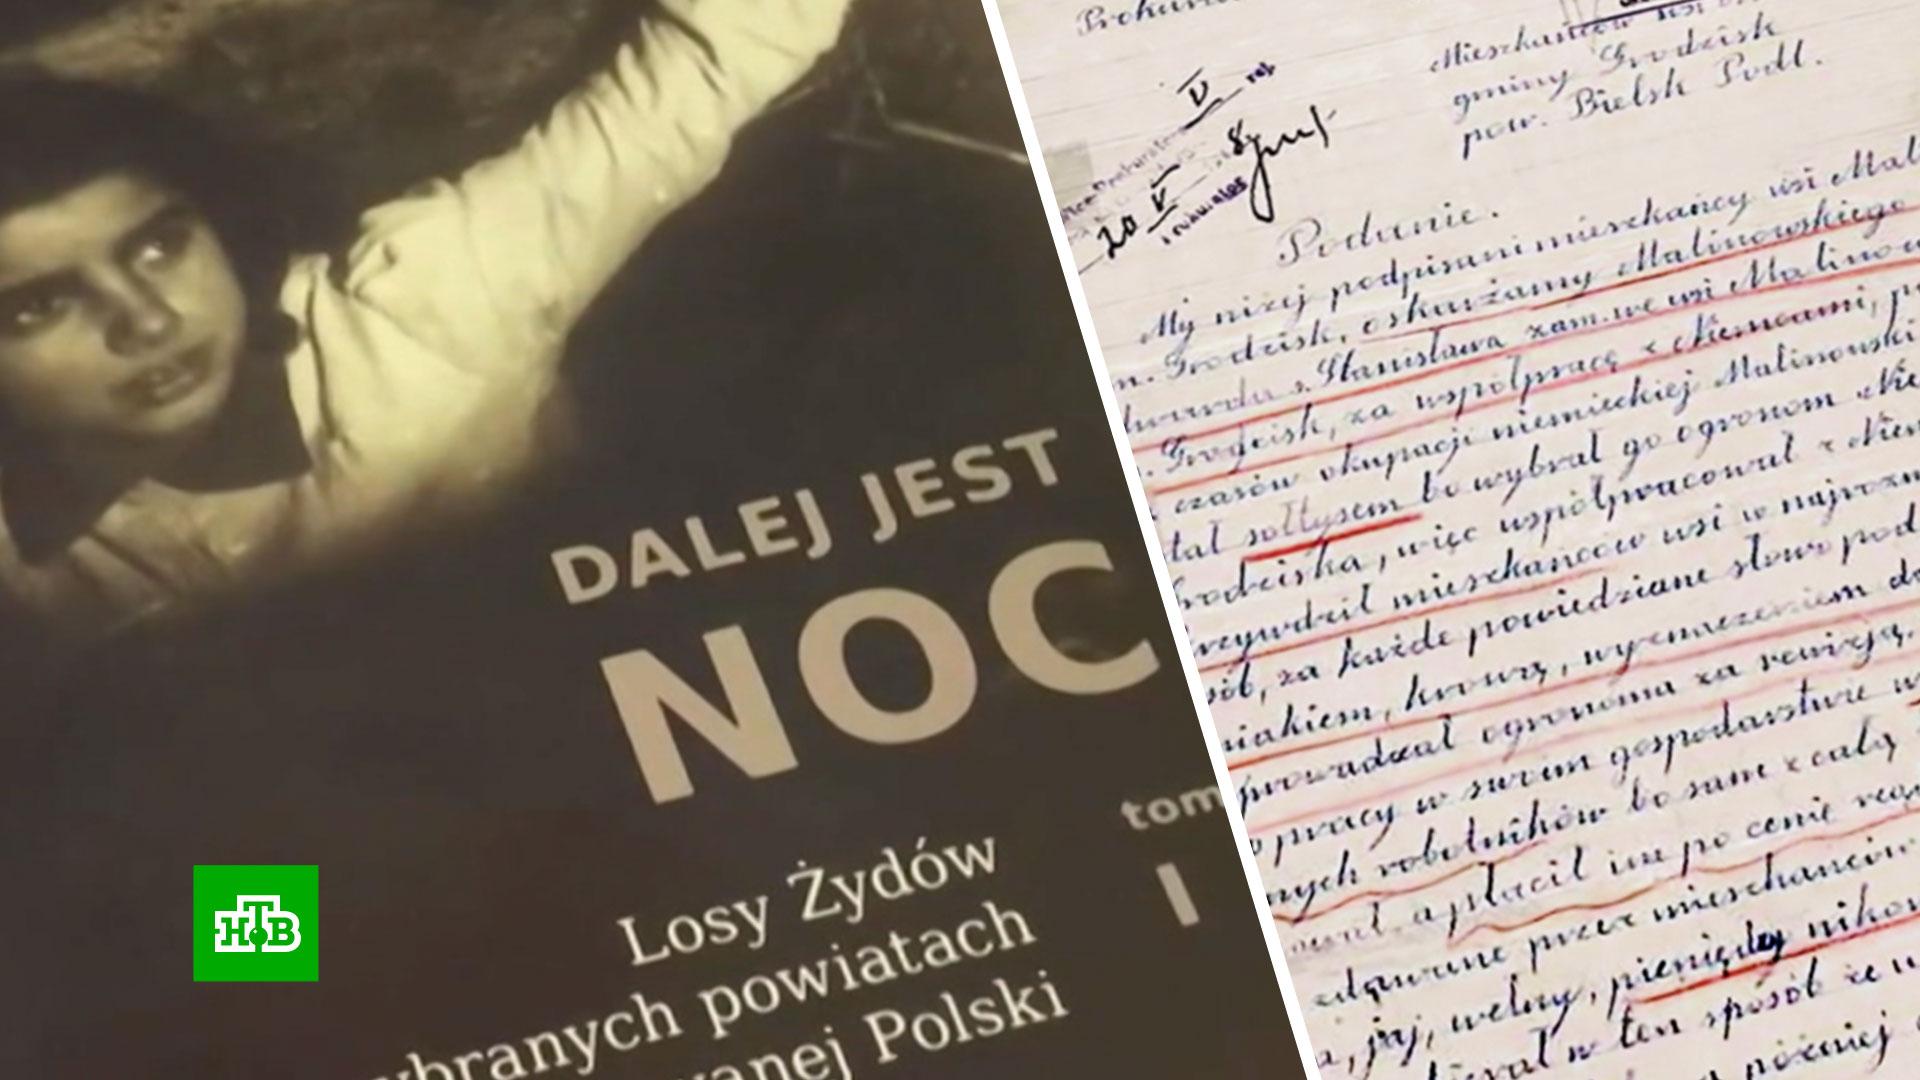 DALEJ JEST
NOC
tom
I
Losy Żydów
ybranych powiatach
wanej Polski
НТВ
Mieszkańców wsi
gminy Grodzisk
pow. Bielsk Podl.
20
Podanie.
My niżej podpisani mieszkańcy wsi Mali
Grodzisk, oskarżamy Malinowskiego
Stanisława zam. we wsi Malinow
Grodzisk, za współpracę z Niemcami, p
czasów okupacji niemieckiej Malinowski
tał sołtysem bo wybrał go ogronom Nie
rodziska, więc współpracował z Niem
rzywdził mieszkańców wsi w najrozma
sób, za każde powiedziane słowo pod
niakiem, krową, wyznaczeniem do
prowadzał ogronoma za rewizją.
pracy w swoim gospodarstwie w
nych robotników bo sam z całą
a płacił im po cenie
przez mieszkańców
a, jaj, wełny, pieniędzy nikom
bierał w ten sposób że w
później